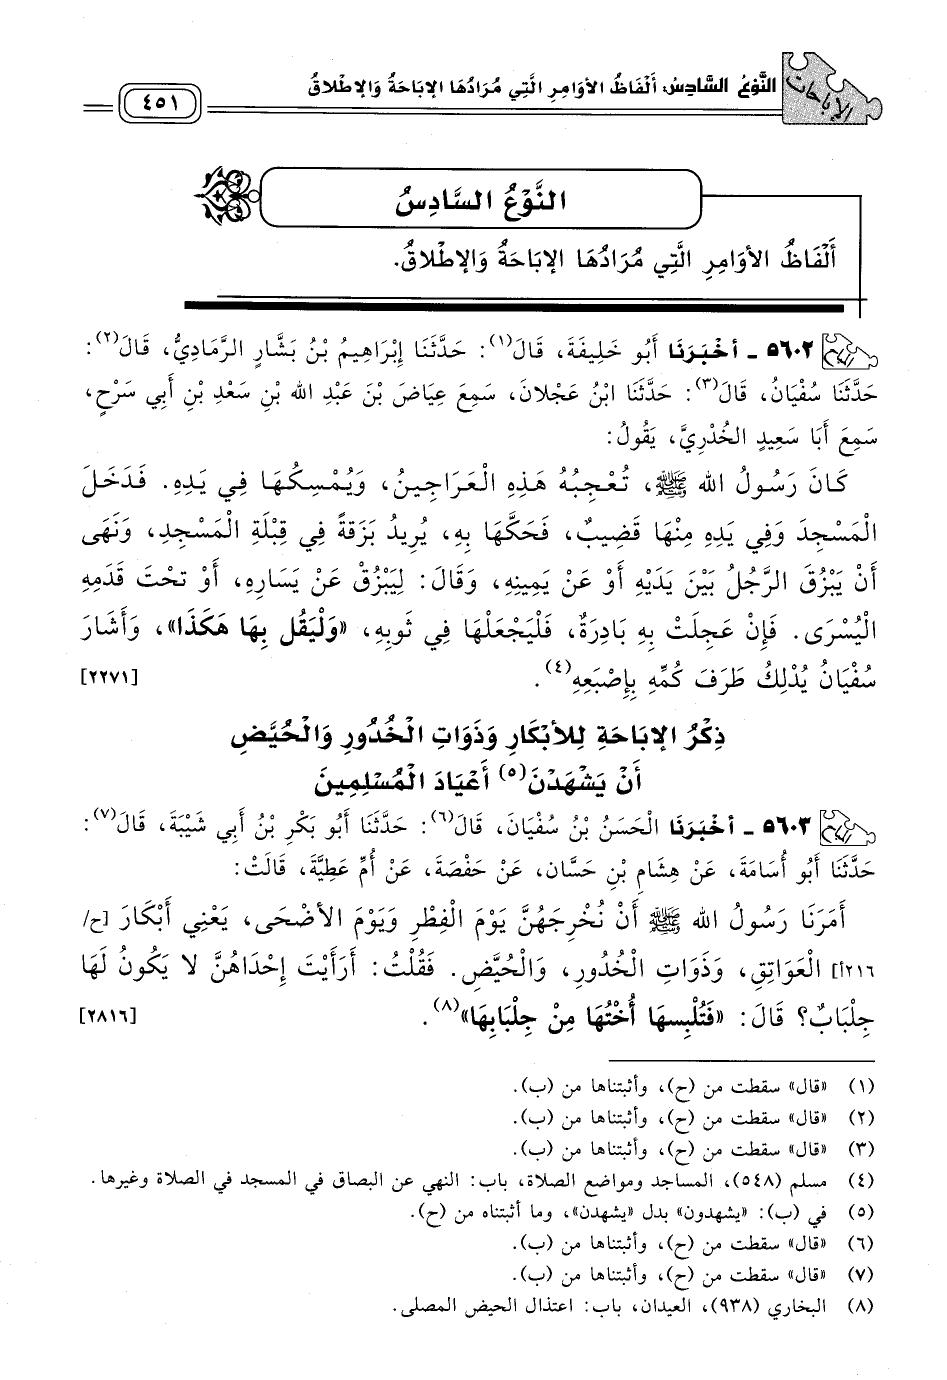 الإباحات
النَّوْعُ السَّادِسُ: أَلْفَاظُ الأوَامِرِ الَّتِي مُرَادُهَا الإبَاحَةُ وَالإطْلاقُ
٤٥١
النَّوْعُ السَّادِسُ
أَلْفَاظُ الأوَامِرِ الَّتِي مُرَادُهَا الإبَاحَةُ وَالإطْلاقُ.
٥٦٠٢ ـ أخْبَرَنَا أَبُو خَلِيفَةَ، قَالَ(١): حَدَّثَنَا إِبْرَاهِيمُ بْنُ بَشَّارٍ الرَّمَادِيُّ، قَالَ(٢):
حَدَّثَنَا سُفْيَانُ، قَالَ(٣): حَدَّثَنَا ابْنُ عَجْلانَ، سَمِعَ عِيَاضَ بْنَ عَبْدِ الله بْنِ سَعْدِ بْنِ أَبِي سَرْحٍ،
سَمِعَ أَبَا سَعِيدٍ الخُدْرِيَّ، يَقُولُ:
كَانَ رَسُولُ الله ﷺ، تُعْجِبُهُ هَذِهِ الْعَرَاجِينُ، وَيُمْسِكُهَا فِي يَدِهِ. فَدَخَلَ
الْمَسْجِدَ وَفِي يَدِهِ مِنْهَا قَضِيبٌ، فَحَكَّهَا بِهِ، يُرِيدُ بَزَقةً فِي قِبْلَةِ الْمَسْجِدِ، وَنَهَى
أَنْ يَبْزُقَ الرَّجُلُ بَيْنَ يَدَيْهِ أَوْ عَنْ يَمِينِهِ، وَقَالَ: لِيَبْزُقْ عَنْ يَسَارِهِ، أَوْ تحْتَ قَدَمِهِ
الْيُسْرَى. فَإِنْ عَجِلَتْ بِهِ بَادِرَةٌ، فَلْيَجْعَلْهَا فِي ثَوبِهِ، «وَلْيَقُل بِهَا هَكَذَا»، وَأَشَارَ
سُفْيَانُ يُدْلِكُ طَرَفَ كُمِّهِ بِإِصْبَعِهِ(٤). [٢٢٧١]
ذِكْرُ الإبَاحَةِ لِلأبْكَارِ وَذَوَاتِ الْخُدُورِ وَالْحُيَّضِ
أَنْ يَشْهَدْنَ(٥) أَعْيَادَ الْمُسْلِمِينَ
٥٦٠٣ ـ أخْبَرَنَا الْحَسَنُ بْنُ سُفْيَانَ، قَالَ(٦): حَدَّثَنَا أَبُو بَكْرِ بْنُ أَبِي شَيْبَةَ، قَالَ(٧):
حَدَّثَنَا أَبُو أُسَامَةَ، عَنْ هِشَامِ بْنِ حَسَّان، عَنْ حَفْصَةَ، عَنْ أُمِّ عَطِيَّةَ، قَالَتْ:
أَمَرَنَا رَسُولُ الله ﷺ أَنْ نُخْرِجَهُنَّ يَوْمَ الْفِطْرِ وَيَوْمَ الأضْحَى، يَعْنِي أَبْكَارَ [ح/
٢١٦أ] الْعَوَاتِقِ، وَذَوَاتِ الْخُدُورِ، وَالْحُيَّضِ. فَقُلْتُ: أَرَأَيْتَ إِحْدَاهُنَّ لا يَكُونُ لَهَا
جِلْبَابٌ؟ قَالَ: «فَتُلْبِسهَا أُخْتُهَا مِنْ جِلْبَابِهَا»(٨). [٢٨١٦]
(١) «قال» سقطت من (ح)، وأثبتناها من (ب).
(٢) «قال» سقطت من (ح)، وأثبتناها من (ب).
(٣) «قال» سقطت من (ح)، وأثبتناها من (ب).
(٤) مسلم (٥٤٨)، المساجد ومواضع الصلاة، باب: النهي عن البصاق في المسجد في الصلاة وغيرها.
(٥) في (ب): «يشهدون» بدل «يشهدن»، وما أثبتناه من (ح).
(٦) «قال» سقطت من (ح)، وأثبتناها من (ب).
(٧) «قال» سقطت من (ح)، وأثبتناها من (ب).
(٨) البخاري (٩٣٨)، العيدان، باب: اعتذال الحيض المصلى.